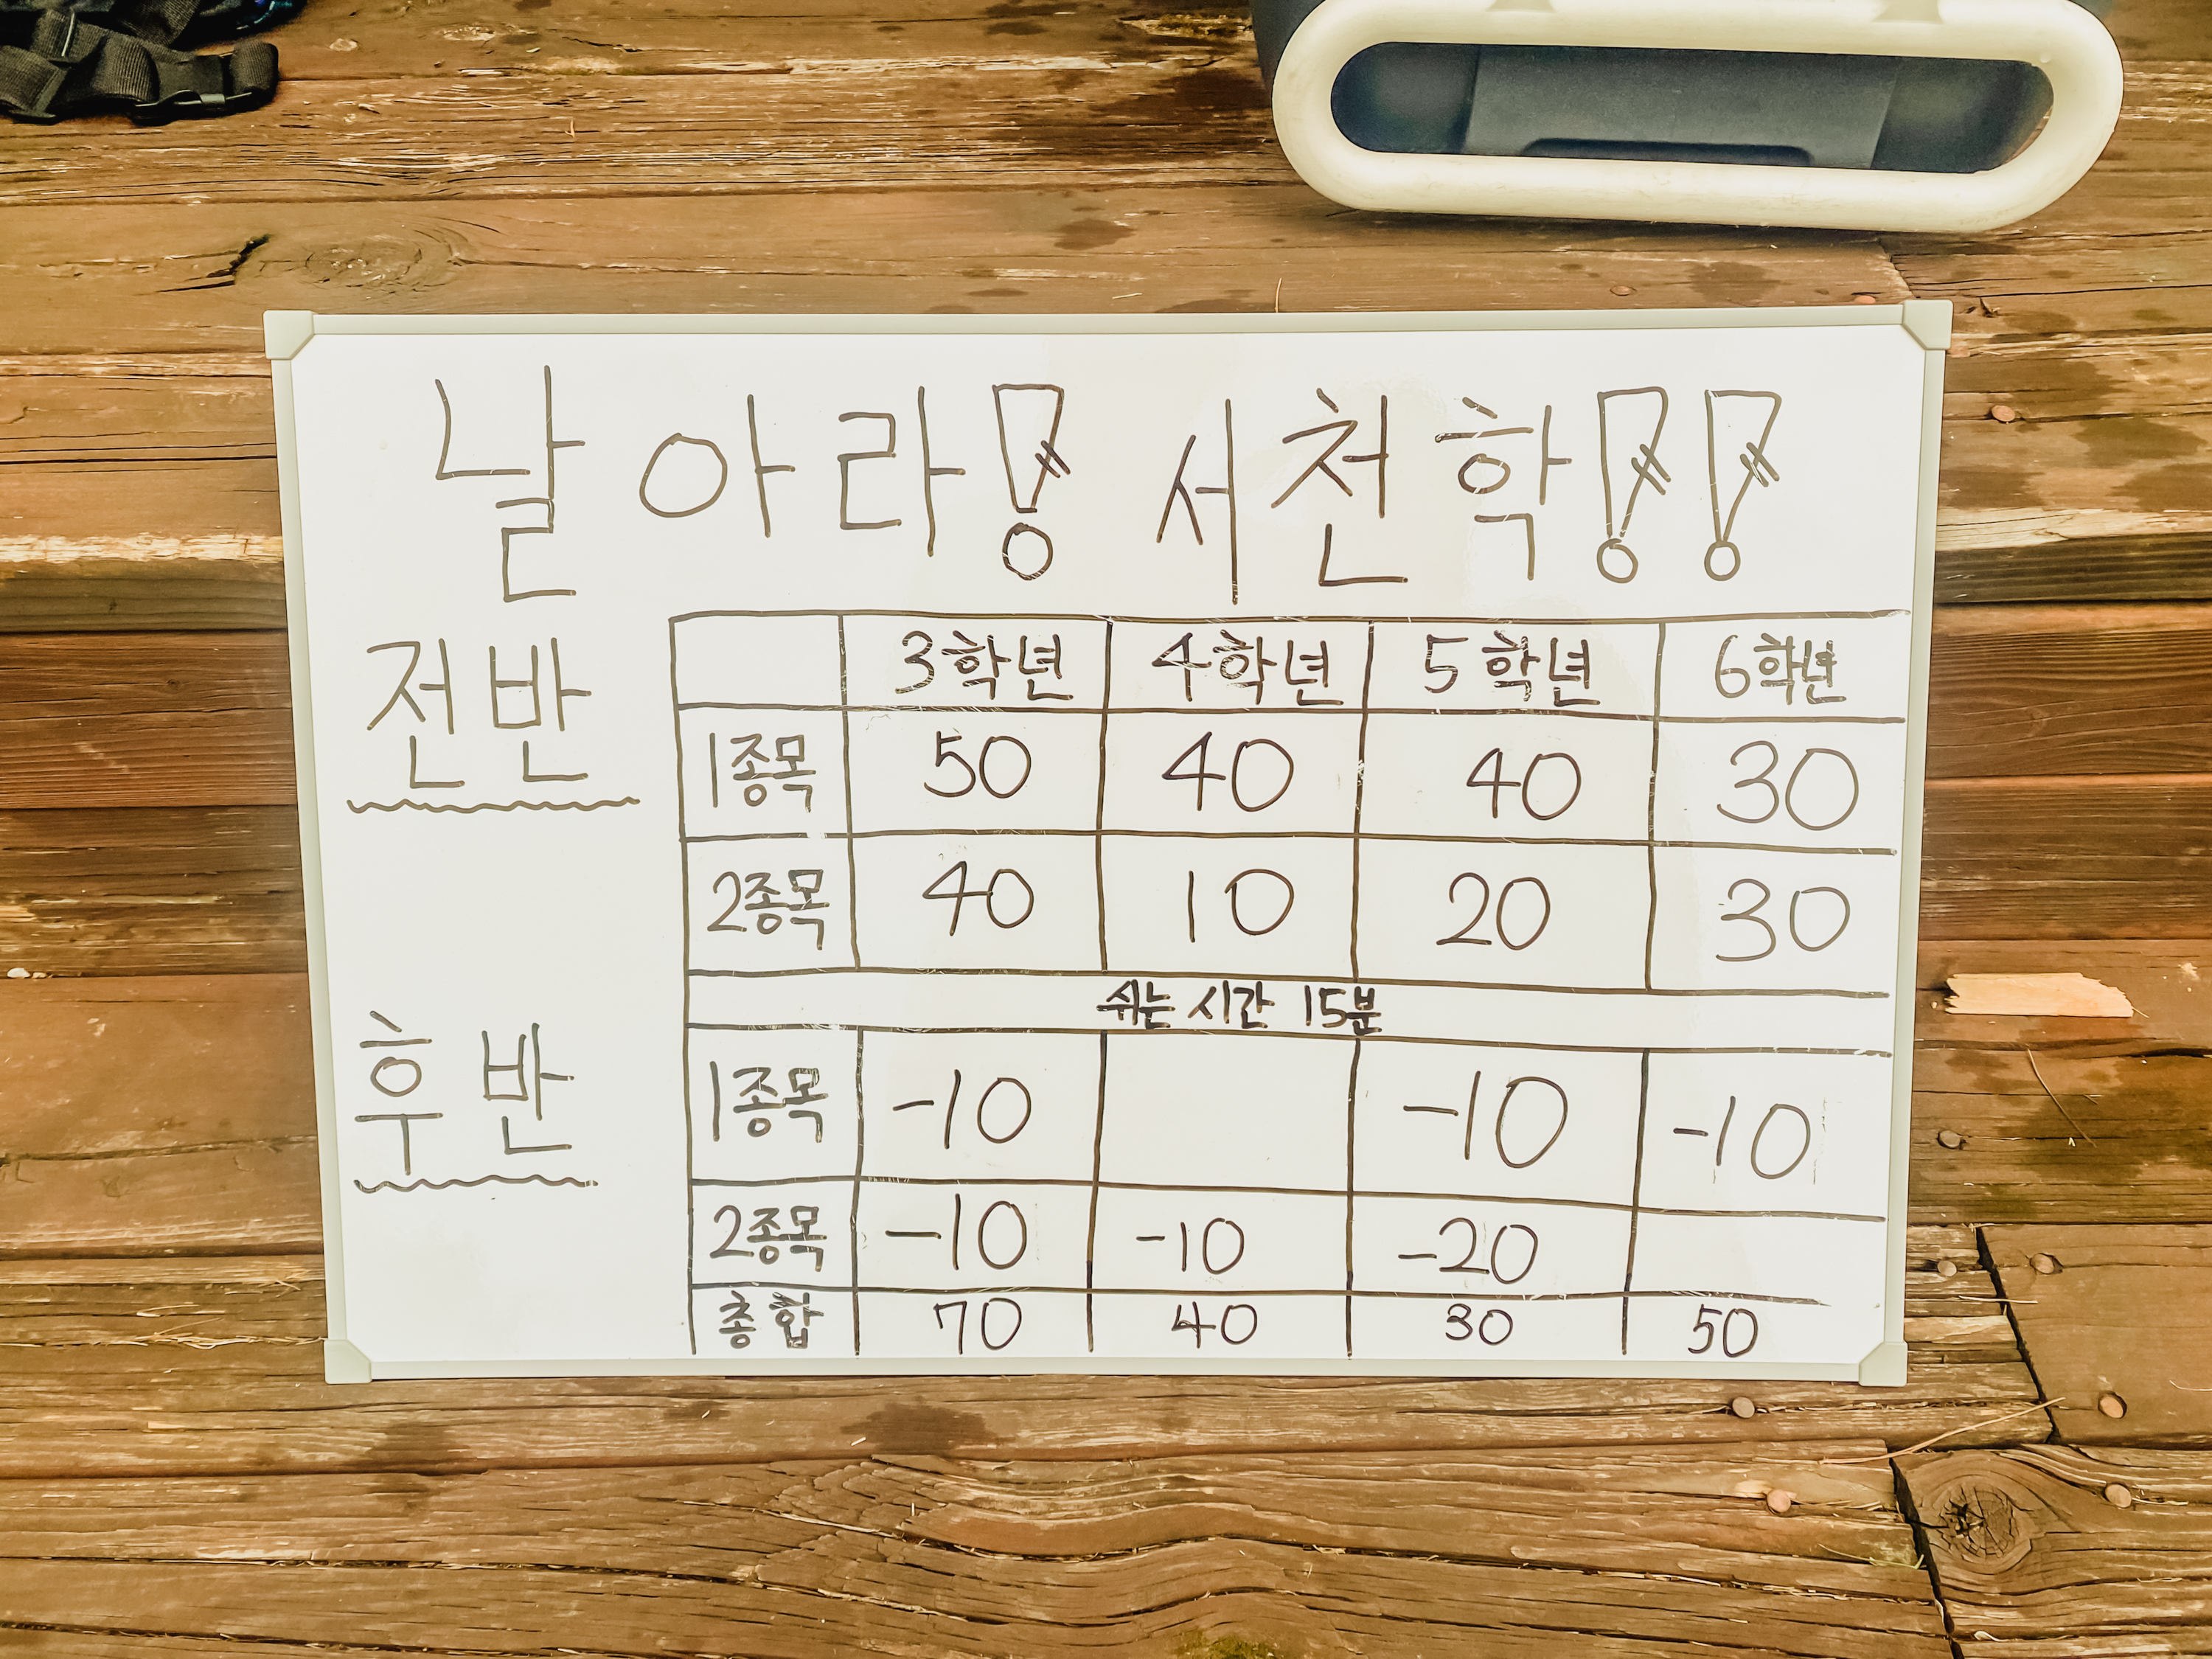 날아라! 서천학!!
전반
3학년 4학년 5학년 6학년
1종목 50 40 40 30
2종목 40 10 20 30
쉬는 시간 15분
후반
1종목 -10 -10 -10
2종목 -10 -10 -20
총합 70 40 30 50